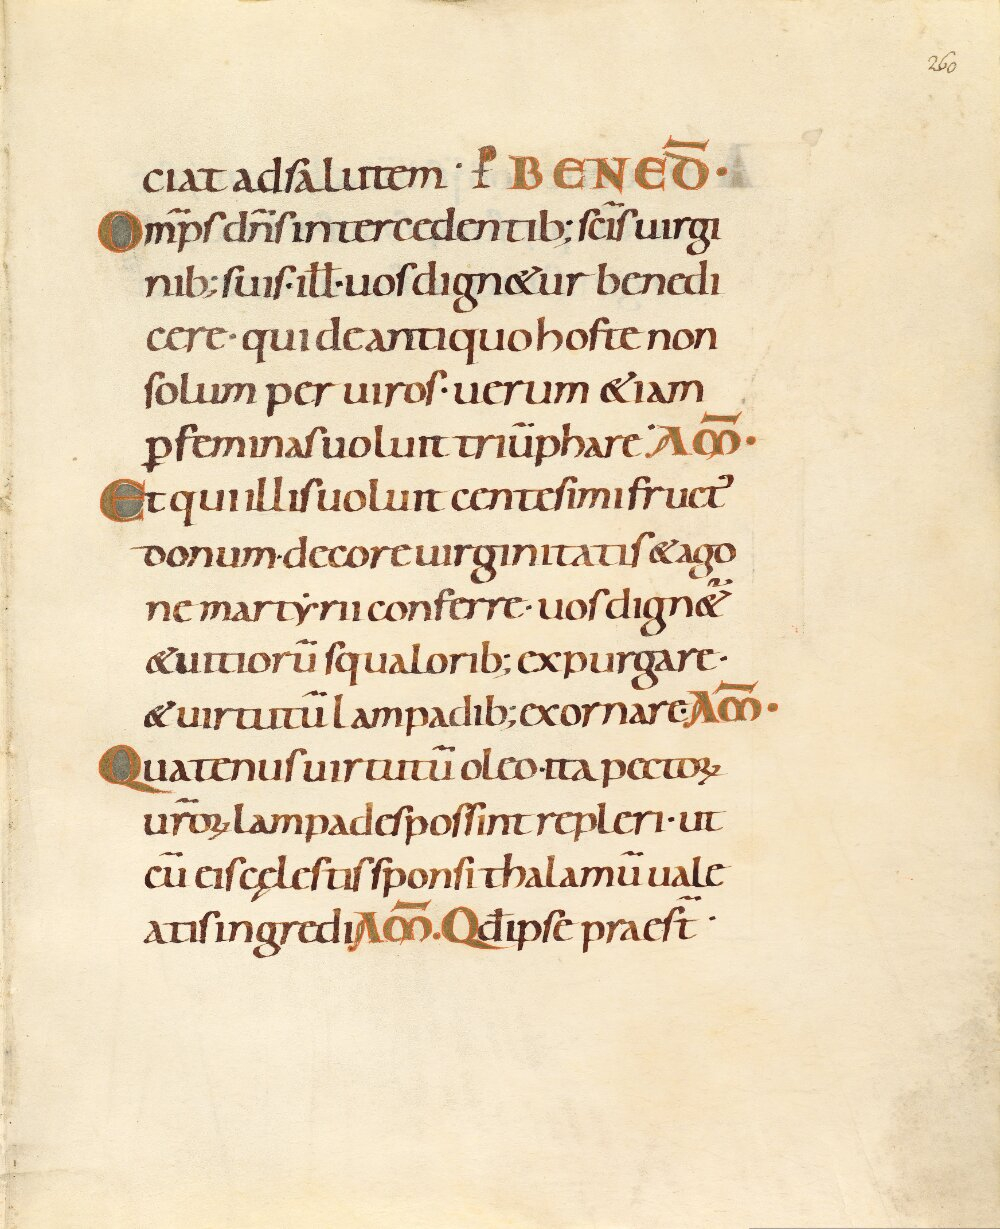 260
ciat ad salutem · P̄ BENED̄ ·
Om̄ps dn̄s intercedentib; sc̄is uirgi
nib; suis · ill̄ · uos dign&ur benedi
cere · qui de antiquo hoste non
solum per uiros · uerum &iam
ꝑ feminas uoluit triūphare · AM̄ ·
Et qui illis uoluit centesimi fruct᷒
donum · decore uirginitatis & ago
ne martẏrii conferre · uos dign&̄
& uitiorū squalorib; expurgare ·
& uirtutū lampadib; exornare · AM̄ ·
Quatenus uirtutū oleo · ita pectoꝝ
ur̄oꝝ lampades possint repleri · ut
cū eis cęlestis sponsi thalamū uale
atis ingredi AM̄ · Qđ ipse praest̄ ·